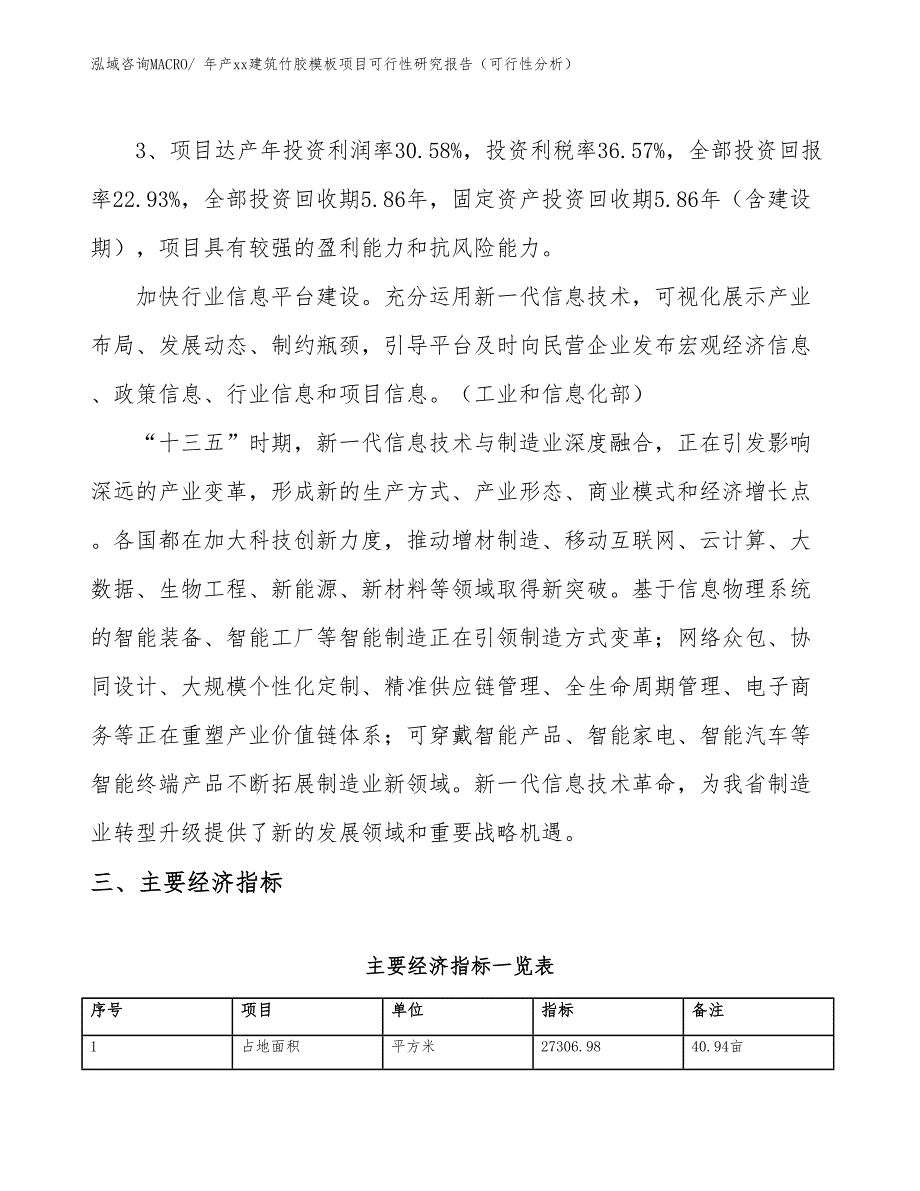 泓域咨询MACRO/ 年产xx建筑竹胶模板项目可行性研究报告（可行性分析）
3、项目达产年投资利润率30.58%，投资利税率36.57%，全部投资回报
率22.93%，全部投资回收期5.86年，固定资产投资回收期5.86年（含建设
期），项目具有较强的盈利能力和抗风险能力。
加快行业信息平台建设。充分运用新一代信息技术，可视化展示产业
布局、发展动态、制约瓶颈，引导平台及时向民营企业发布宏观经济信息
、政策信息、行业信息和项目信息。（工业和信息化部）
“十三五”时期，新一代信息技术与制造业深度融合，正在引发影响
深远的产业变革，形成新的生产方式、产业形态、商业模式和经济增长点
。各国都在加大科技创新力度，推动增材制造、移动互联网、云计算、大
数据、生物工程、新能源、新材料等领域取得新突破。基于信息物理系统
的智能装备、智能工厂等智能制造正在引领制造方式变革；网络众包、协
同设计、大规模个性化定制、精准供应链管理、全生命周期管理、电子商
务等正在重塑产业价值链体系；可穿戴智能产品、智能家电、智能汽车等
智能终端产品不断拓展制造业新领域。新一代信息技术革命，为我省制造
业转型升级提供了新的发展领域和重要战略机遇。
三、主要经济指标
主要经济指标一览表
序号 项目 单位 指标 备注
1 占地面积 平方米 27306.98 40.94亩